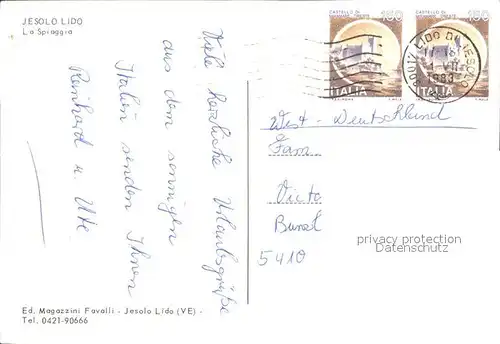 JESOLO LIDO
La Spiaggia
Viele herzliche Urlaubsgrüße
aus dem sonnigen
Italien senden Ihnen
Reinhard u. Ute
CASTELLO DI
CASTELLO DI
ITALIA
ITALIA
30017 LIDO DI JESOLO
1983
West-Deutschland
Fam.
5410
privacy protection
Datenschutz
Ed. Magazzini Favalli - Jesolo Lido (VE) -
Tel. 0421-90666